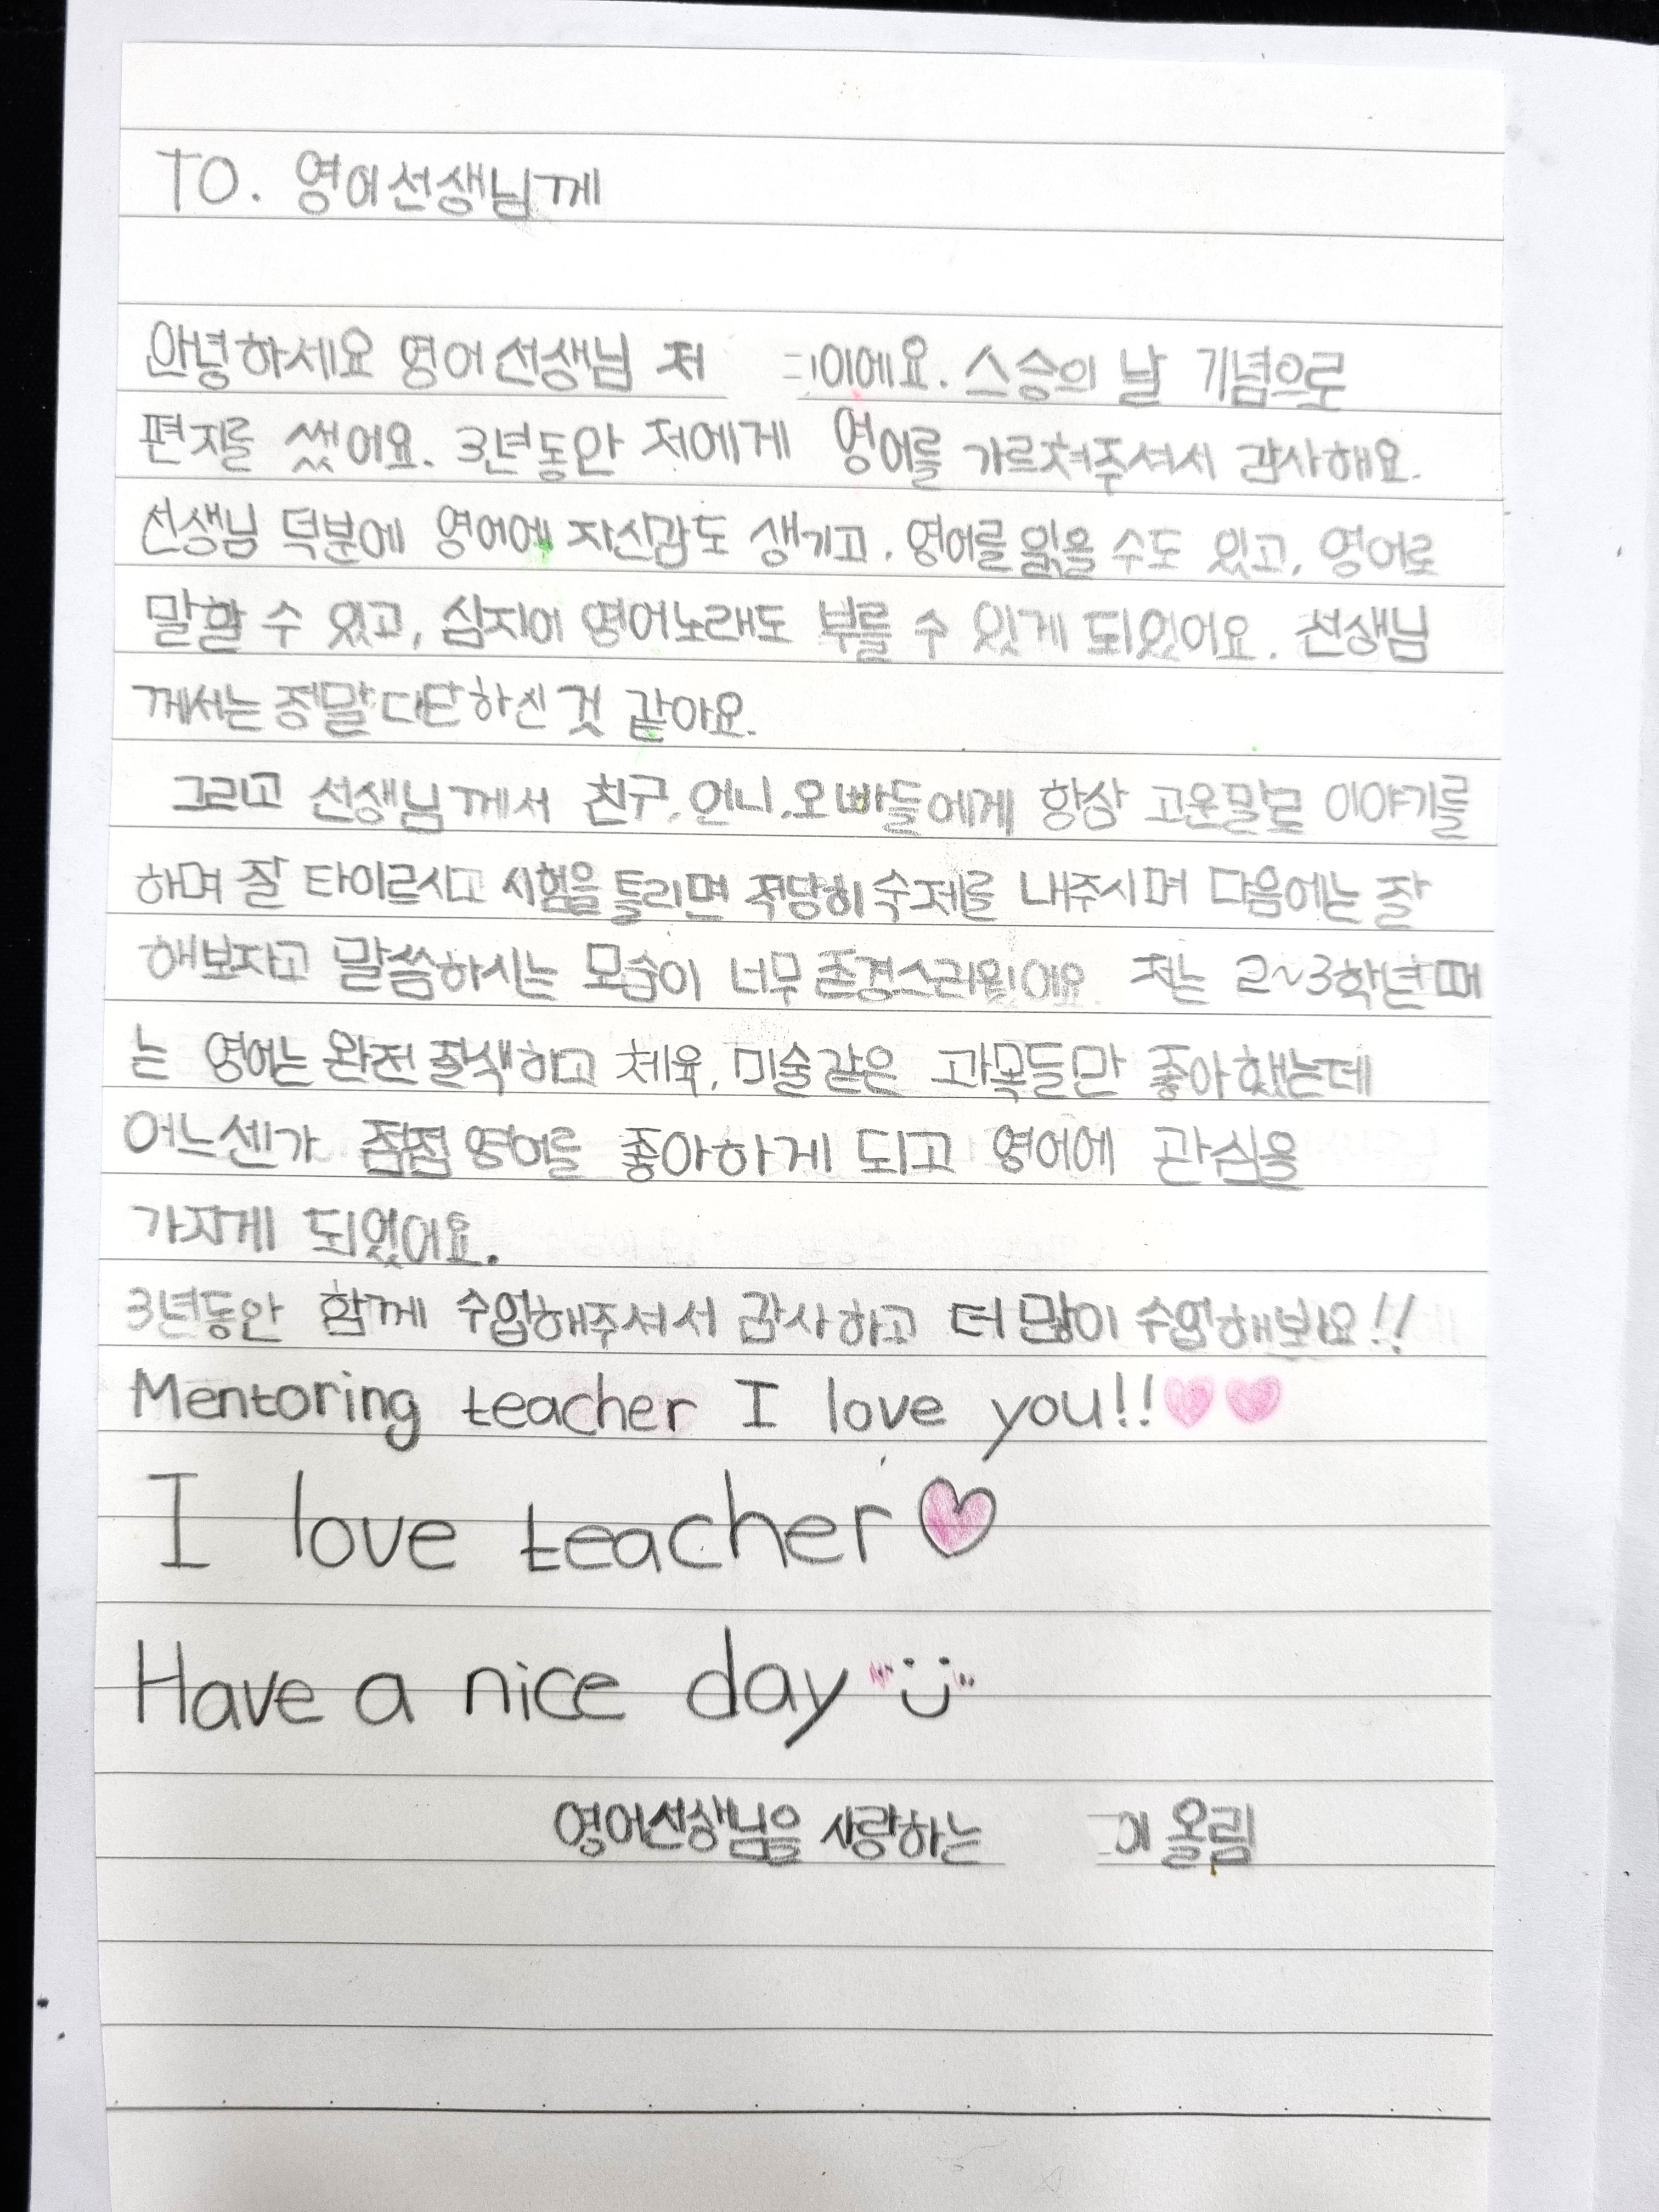 TO. 영어선생님께
안녕하세요 영어선생님 저 이에요. 스승의 날 기념으로
편지를 썼어요. 3년동안 저에게 영어를 가르쳐주셔서 감사해요.
선생님 덕분에 영어에 자신감도 생기고, 영어를 읽을 수도 있고, 영어로
말할 수 있고, 심지어 영어노래도 부를 수 있게 되었어요. 선생님
께서는 정말 대단하신 것 같아요.
그리고 선생님께서 친구, 언니, 오빠들에게 항상 고운말로 이야기를
하며 잘 타이르시고 시험을 틀리면 적당히 숙제를 내주시며 다음에는 잘
해보자고 말씀하시는 모습이 너무 존경스러웠어요 저는 2~3학년때
는 영어는 완전 질색하고 체육, 미술같은 과목들만 좋아했는데
어느센가 점점 영어를 좋아하게 되고 영어에 관심을
가지게 되었어요.
3년동안 함께 수업해주셔서 감사하고 더 많이 수업해봐요!!
Mentoring teacher I love you!!
I love teacher
Have a nice day
영어선생님을 사랑하는 올림